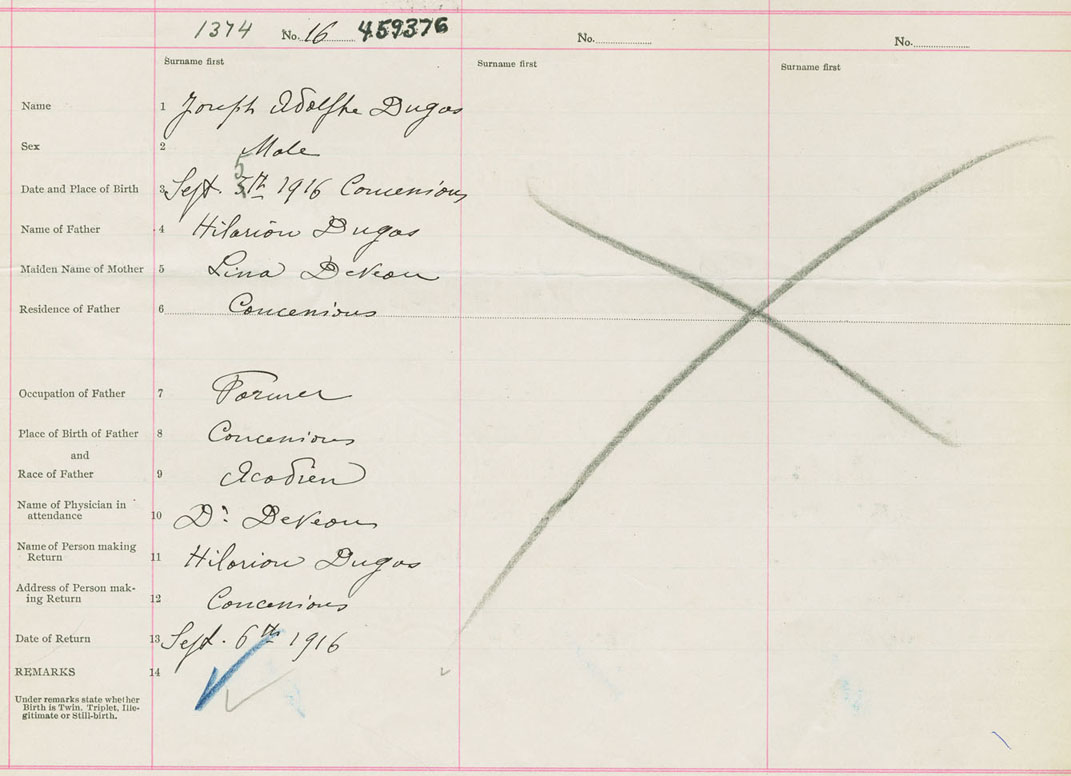 1374 No. 16 459376 No. No.
Surname first Surname first Surname first
Name 1 Joseph Adolphe Dugas
Sex 2 Male
Date and Place of Birth 3 Sept. 5th 1916 Concenious
Name of Father 4 Hilarion Dugas
Maiden Name of Mother 5 Lina DeVeau
Residence of Father 6 Concenious
Occupation of Father 7 Farmer
Place of Birth of Father 8 Concenious
and
Race of Father 9 Acadien
Name of Physician in
attendance 10 Dr. DeVeau
Name of Person making
Return 11 Hilarion Dugas
Address of Person mak-
ing Return 12 Concenious
Date of Return 13 Sept. 6th 1916
REMARKS 14
Under remarks state whether
Birth is Twin, Triplet, Ille-
gitimate or Still-birth.